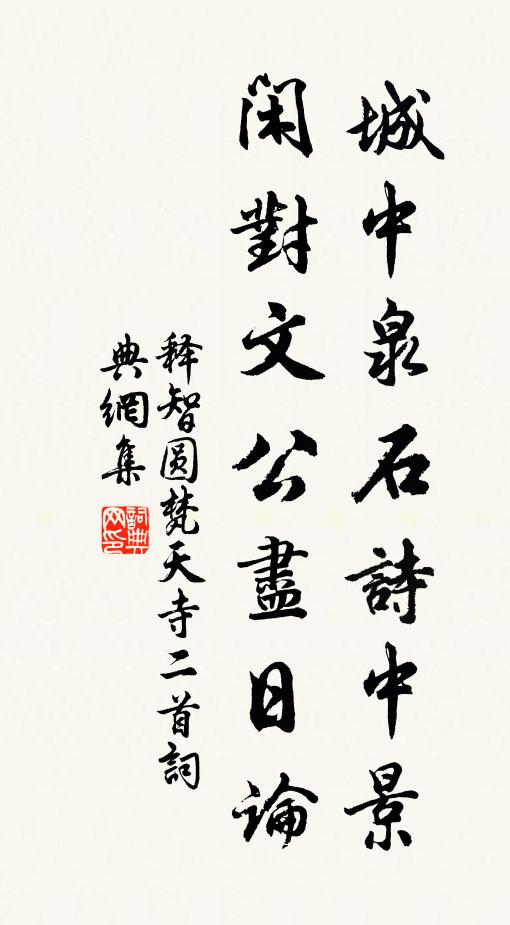 城中泉石詩中景
閑對文公盡日論
释智圆梵天寺二首詞
典網集
詞典网印